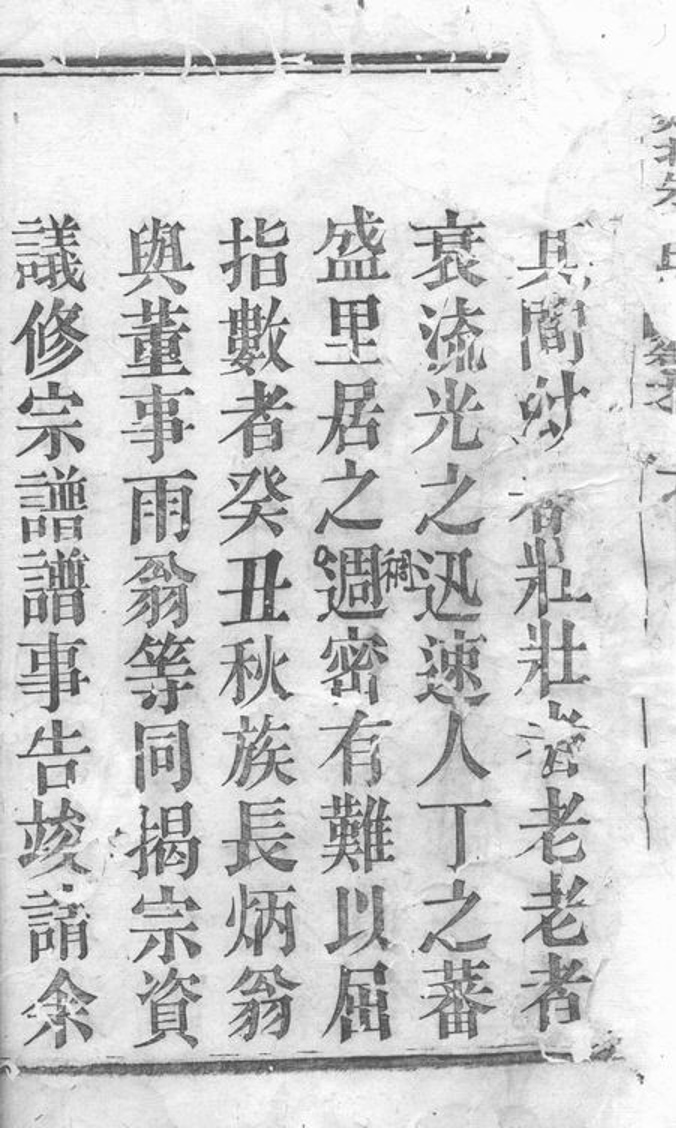 其間幼者壯壯者老老者
衰流光之迅速人丁之蕃
稠
盛里居之週密有難以屈
指數者癸丑秋族長炳翁
與董事雨翁等同揭宗資
議修宗譜譜事告竣請余